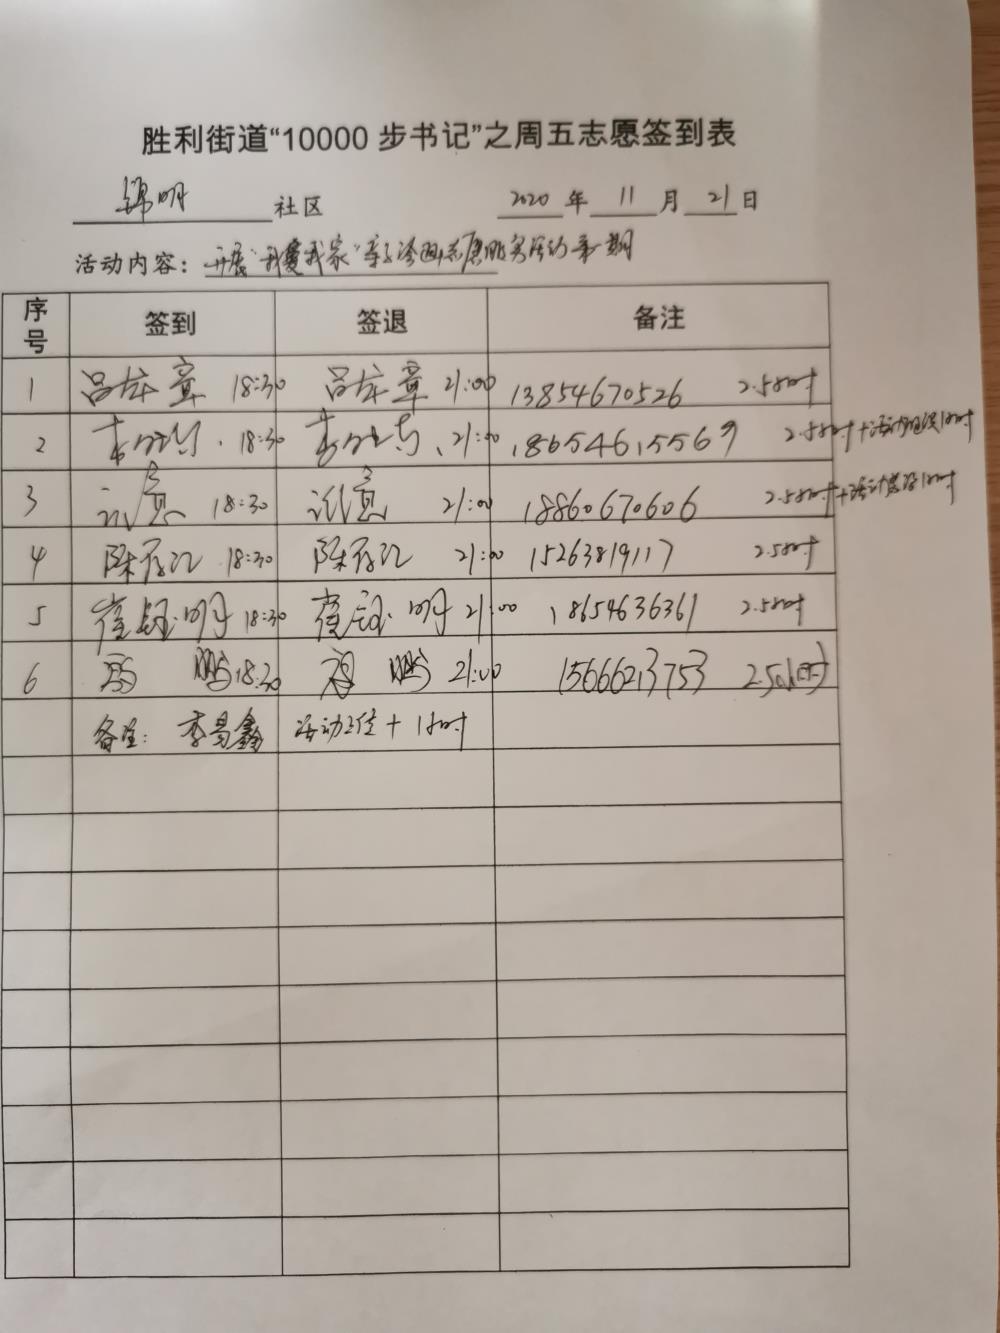 胜利街道“10000 步书记”之周五志愿签到表
锦明 社区 2020 年 11 月 21 日
活动内容： 开展“我爱我家”亲子绘画志愿服务活动第一期
序号 签到 签退 备注
1 吕龙章 18:30 吕龙章 21:00 13854670526 2.5小时
2 18:30 21:00 18654615569 2.5小时+活动组织1小时
3 18:30 21:00 18860670606 2.5小时+活动 1小时
4 陈存江 18:30 陈存江 21:00 15263819117 2.5小时
5 崔钰明 18:30 崔钰明 21:00 18654636361 2.5小时
6 冯鹏 18:30 冯鹏 21:00 15666213753 2.5小时
备注： 李昌鑫 活动 + 1小时